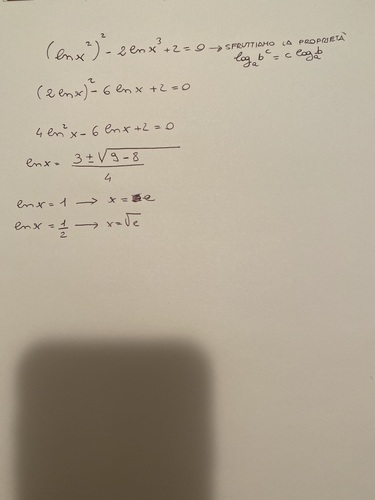 (ln x²)² - 2 ln x³ + 2 = 0 → SFRUTTIAMO LA PROPRIETÀ
logₐ bᶜ = c logₐ b
(2 ln x)² - 6 ln x + 2 = 0
4 ln² x - 6 ln x + 2 = 0
ln x = (3 ± √(9 - 8)) / 4
ln x = 1 → x = e
ln x = 1/2 → x = √e